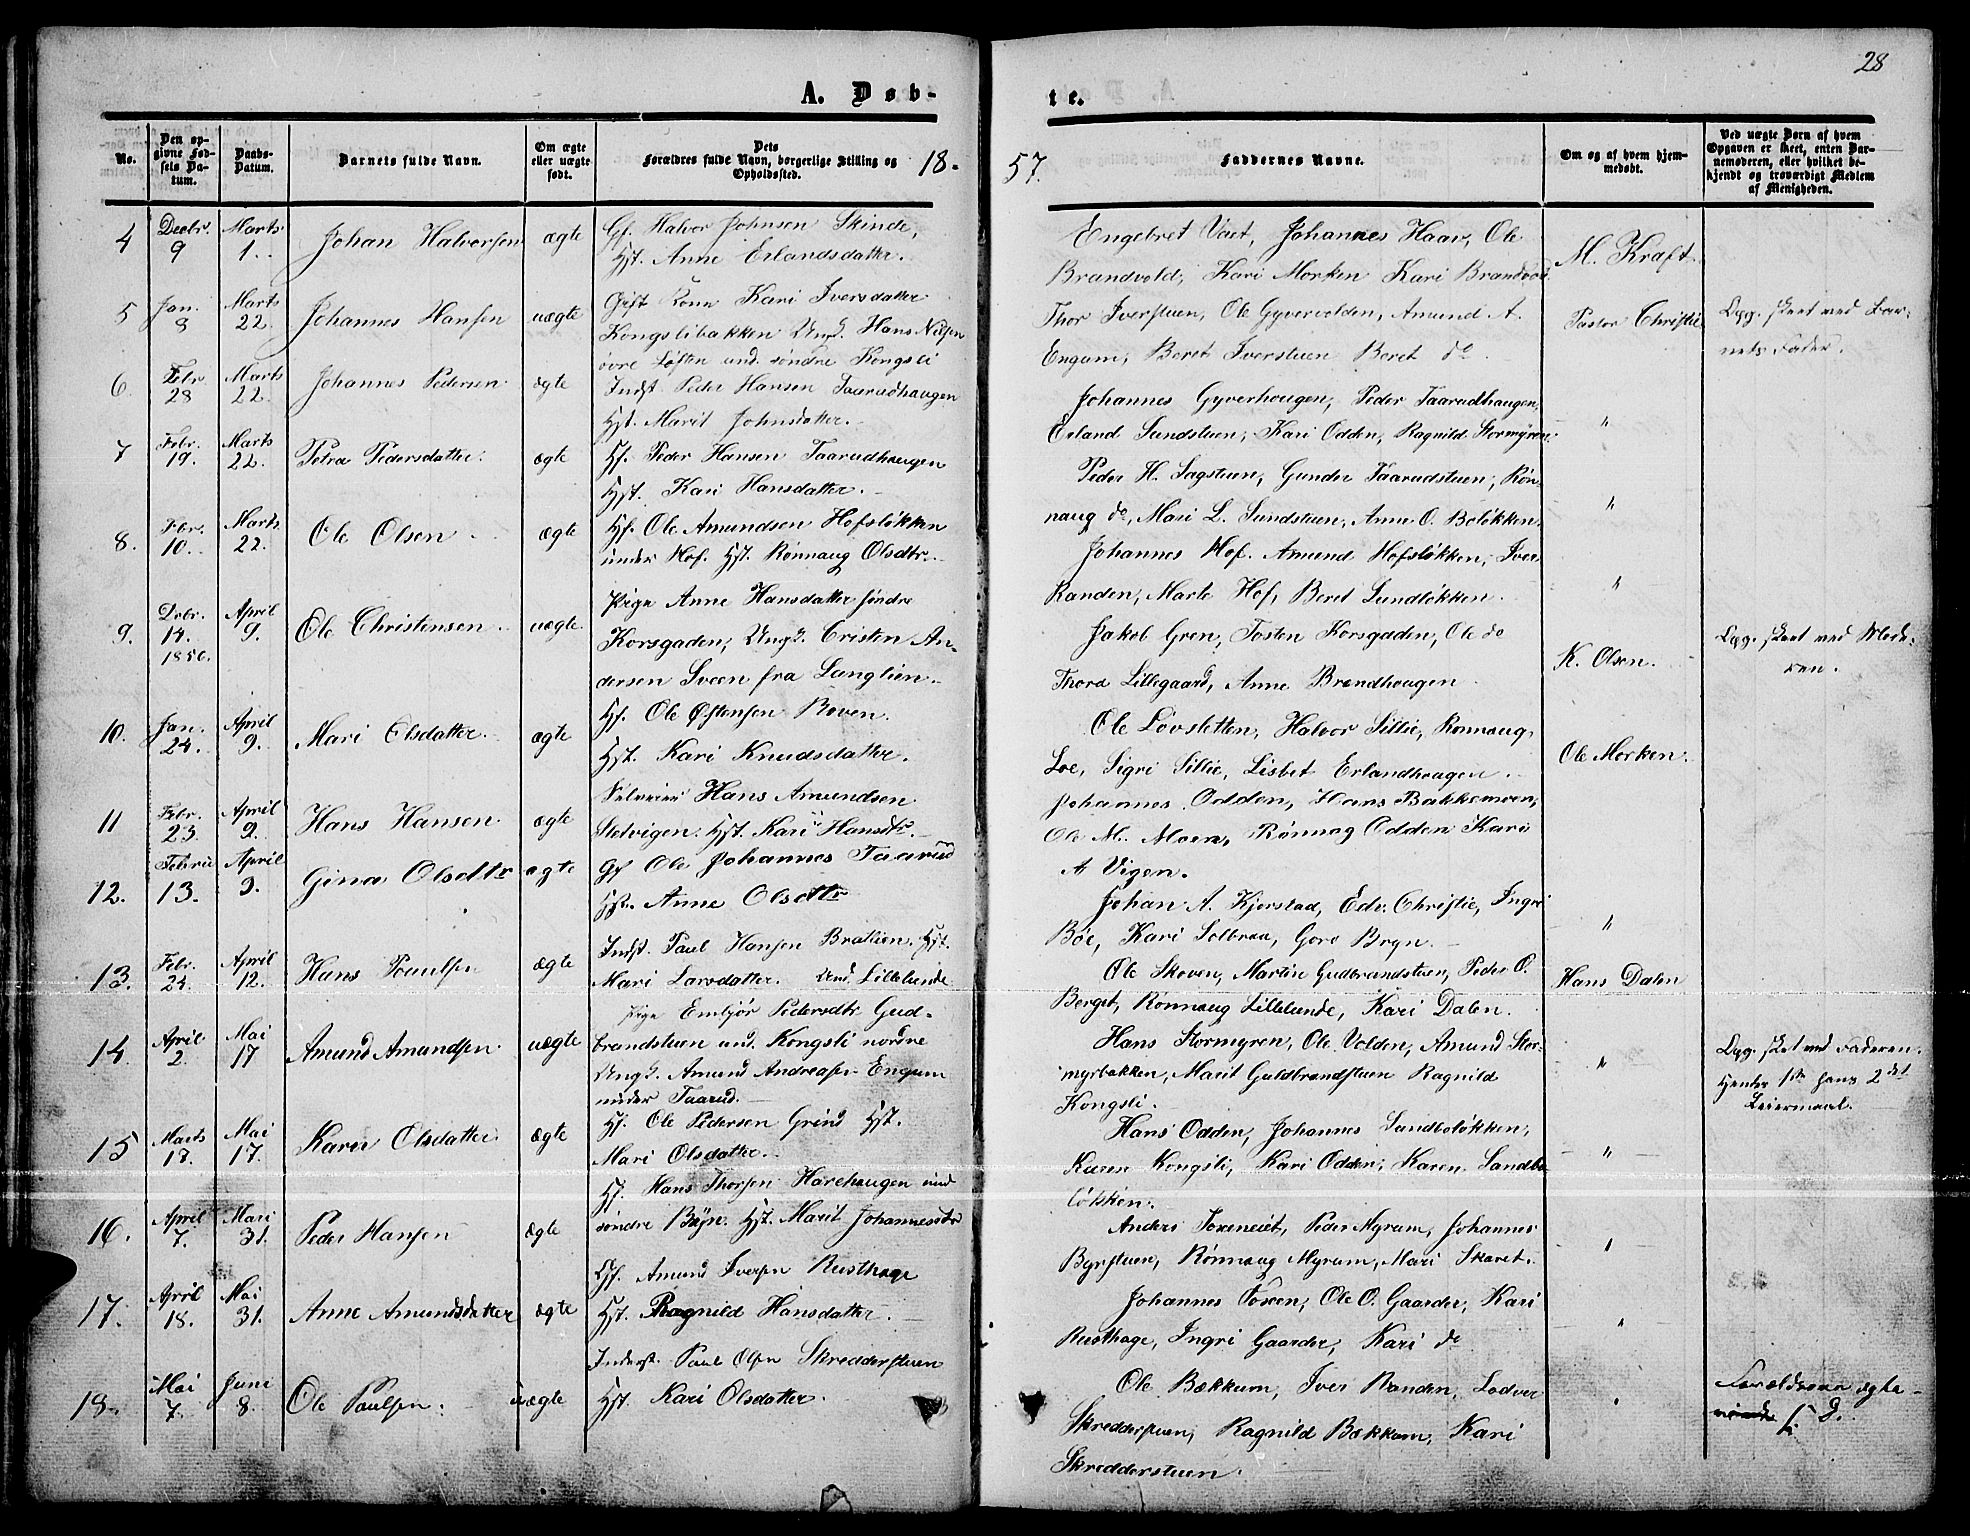 28
A. Døb-
te.
No.
Den op-
givne Fød-
sels Da-
tum.
Daabs-
Datum.
Barnets fulde Navn.
Om ægte
eller uægte
født.
Dets
Forældres fulde Navn, borgerlige Stilling og
Opholdssted.
18-
57.
Faddernes Navne.
Om og af hvem hjem-
medøbt.
Ved uægte Børn af hvem
Opgaven er skeet, enten Bar-
nemoderen, eller hvilket be-
kjendt og troværdigt Medlem
af Menigheden.
4
Decbr.
9
Marts
1.
Johan Halvorsen
ægte
Gf. Halvor Johnsen Skinde,
Hst. Anne Erlandsdatter.
Engebret Vaet, Johannes Haav, Ole
Brandvold, Kari Morken Kari Brandvold
M. Kraft
5
Jan.
8
Marts
22.
Johannes Hansen
uægte
Gift Kone Kari Iversdatter
Kongslibakken Ungk. Hans Nilsen
øvre Løften und. søndre Kongsli
Thor Iverstuen, Ole Gyvervolden, Amund A.
Engum, Beret Iverstuen Beret do
Pastor Christie
Opg. skeet ved Bar-
nets Fader.
6.
Febr.
28
Marts
22.
Johannes Pedersen
ægte
Indst Peder Hansen Taarudhaugen
Hst. Marit Johnsdatter.
Johannes Gyverhougen, Peder Taarudhaugen,
Erland Sundstuen, Kari Odden, Ragnild Stormyren.
"
7
Febr.
19.
Marts
22.
Petra Pedersdatter.
ægte
Hf. Peder Hansen Taarudhaugen
Hst. Kari Hansdatter.
Peder H. Sagstuen, Gunder Taarudstuen, Røn-
naug do, Mari L. Sundstuen, Anne O. Boløkken.
"
8.
Febr.
10.
Marts
22.
Ole Olsen
ægte
Hf. Ole Amundsen Hofsløkken
under Hof. Hst. Rønnaug Olsdtr.
Johannes Hof. Amund Hofsløkken, Iver
Randen, Marte Hof, Beret Sundløkken.
"
9.
Debr.
14.
1856.
April
9.
Ole Christensen
uægte.
Pige Anne Hansdatter søndre
Korsgaden, Ungk. Cristen An-
dersen Sveen fra Langlien.
Jakob Gren, Tosten Korsgaden, Ole do
Thora Lillegaard, Anne Brendhougen
K. Olsen.
Opg. skeet ved Mode-
ren.
10.
Jan.
24.
April
9.
Mari Olsdatter.
ægte
Hf. Ole Østensen Roven.
Hst. Kari Knudsdatter.
Ole Løvsletten, Halvor Sillie, Rønnaug
Loe, Sigri Sillie, Lisbet Erlandhougen.
Ole Morken.
11
Febr.
23.
April
9.
Hans Hansen.
ægte
Selveier Hans Amundsen
Stolvigen. Hst. Kari Hansdtr.
Johannes Odden, Hans Bakkemoen,
Ole M. Moen, Rønnog Odden Kari
A Vigen.
12.
Februar
13.
April
9.
Gina Olsdtr
ægte
Gf Ole Johannes Taarud
Hst. Anne Olsdtr
Johan A. Kjorstad, Edv. Christie, Ingri
Bøe, Kari Solbraa, Goro Bryn.
"
13.
Febr.
24.
April
12.
Hans Paulsen
ægte
Indst. Paul Hansen Bratlien. Hst.
Mari Larsdatter. Und. Lillelunde
Ole Skoven, Martin Gudbrandstuen, Peder O.
Berget, Rønnaug Lillelunde, Kari Dalen.
Hans Dalen
14.
April
2.
Mai
17
Amund Amundsen
uægte
Pige Embjør Pedersdtr. Gud-
brandstuen und. Kongsli nordre
Ungk. Amund Andreasen Engum
under Taarud.
Hans Stormyren, Ole Volden, Amund Stor-
myrbakken, Marit Guldbrandstuen Ragnild
Kongsli.
"
Opg. skeet ved Faderen.
Hendes 1ste hans 2det
Leiermaal.
15
Marts
18.
Mai
17.
Karen Olsdatter.
ægte
Hf. Ole Pedersen Grind Hst.
Mari Olsdatter.
Hans Odden, Johannes Sundboløkken,
Karen Kongsli, Kari Odden, Karen Sandbo-
løkken.
"
16.
April
7.
Mai
31.
Peder Hansen
ægte
Hf. Hans Thorsen Hårehaugen und
søndre Bryn. Hst. Marit Johannesdtr
Anders Toxeneiet, Peder Myrum, Johannes
Bynstuen, Rønnaug Myrum, Mari Skaret.
"
17.
April
18.
Mai
31.
Anne Amundsdatter
ægte
Hf. Amund Iversen Rusthage
Hst. Ragnild Hansdatter.
Johannes Toxen, Ole O. Gaarder, Kari
Rusthage, Ingri Gaarder, Kari do
"
18.
Mai
7.
Juni
8.
Ole Paulsen.
uægte
Inderst. Paul Olsen Skredderstuen
Hst. Kari Olsdatter.
Ole Bækkum, Iver Randen, Lodver
Skredderstuen, Ragnild Bækkum, Kari
Skredderstuen.
"
Forældrene ægte-
f. D.